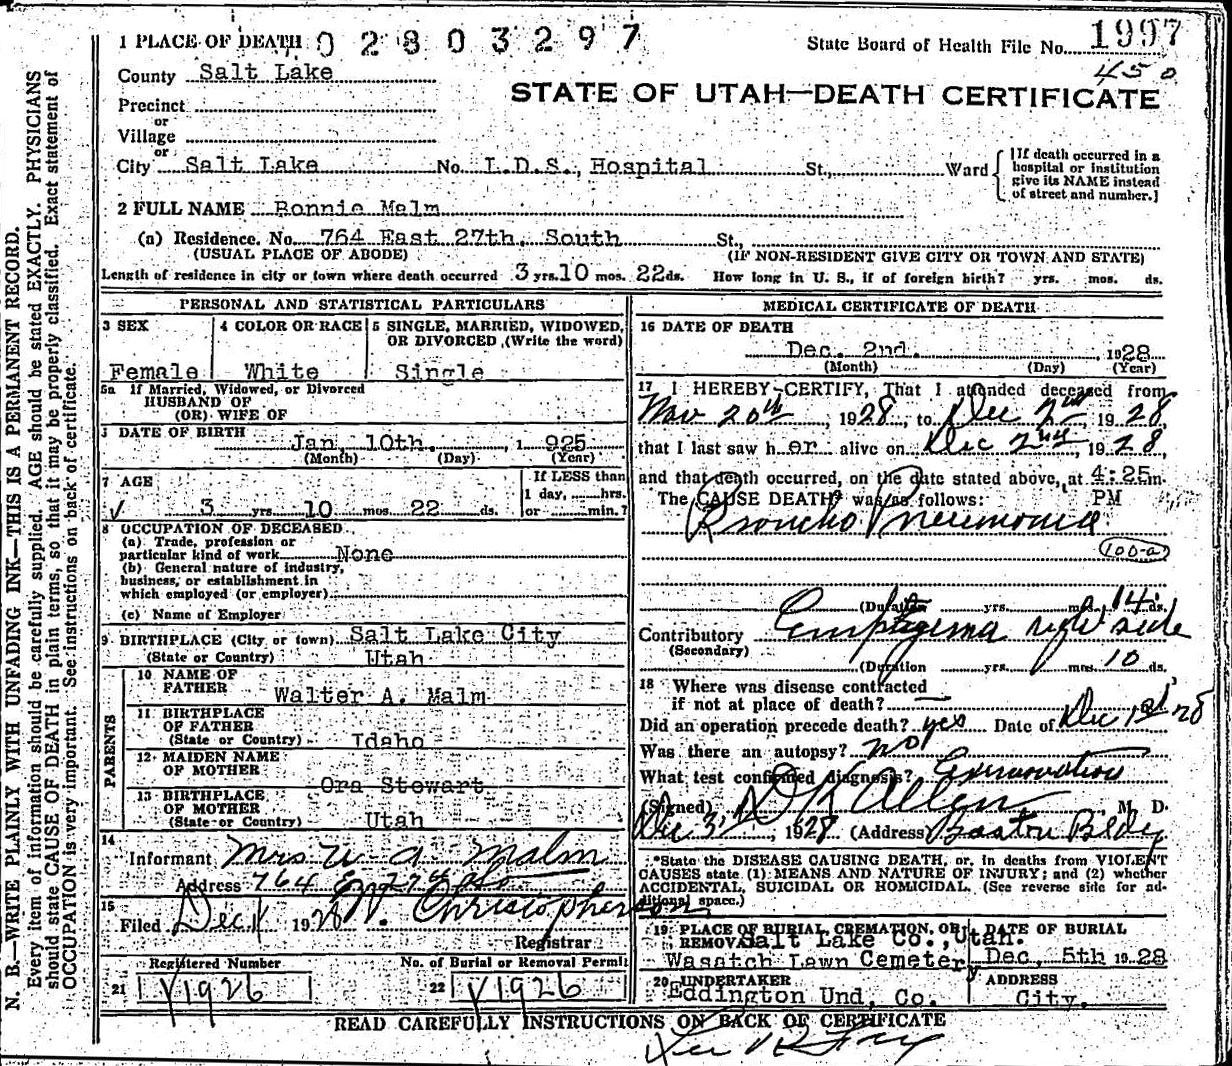 1 PLACE OF DEATH 02803297
State Board of Health File No. 1997
County Salt Lake
450
STATE OF UTAH—DEATH CERTIFICATE
Precinct
or
Village
or
City Salt Lake No. L.D.S., Hospital St., Ward
[If death occurred in a
hospital or institution
give its NAME instead
of street and number.]
2 FULL NAME Bonnie Malm
(a) Residence. No. 764 East 27th, South St.,
(USUAL PLACE OF ABODE) (IF NON-RESIDENT GIVE CITY OR TOWN AND STATE)
Length of residence in city or town where death occurred 3 yrs. 10 mos. 22 ds. How long in U. S., if of foreign birth? yrs. mos. ds.
PERSONAL AND STATISTICAL PARTICULARS
3 SEX
Female
4 COLOR OR RACE
White
5 SINGLE, MARRIED, WIDOWED,
OR DIVORCED (Write the word)
Single
5a If Married, Widowed, or Divorced
HUSBAND OF
(OR) WIFE OF
DATE OF BIRTH
Jan. 10th, 1 925
(Month) (Day) (Year)
7 AGE
3 yrs. 10 mos. 22 ds.
If LESS than
1 day, hrs.
or min.?
8 OCCUPATION OF DECEASED
(a) Trade, profession or
particular kind of work None
(b) General nature of industry,
business, or establishment in
which employed (or employer)
(c) Name of Employer
9 BIRTHPLACE (City or town) Salt Lake City
(State or Country) Utah
PARENTS
10 NAME OF
FATHER
Walter A. Malm
11 BIRTHPLACE
OF FATHER
(State or Country) Idaho
12 MAIDEN NAME
OF MOTHER
Ora Stewart
13 BIRTHPLACE
OF MOTHER
(State or Country) Utah
14
Informant Mrs W. A. Malm
Address 764 E 27th So
15
Filed Dec 1928 Christopherson
Registrar
Registered Number
21 1926
No. of Burial or Removal Permit
22 1926
MEDICAL CERTIFICATE OF DEATH
16 DATE OF DEATH
Dec. 2nd. 1928
(Month) (Day) (Year)
17 I HEREBY CERTIFY, That I attended deceased from
Nov 20th, 1928, to Dec 2nd 1928,
that I last saw her alive on Dec 2nd, 1928,
and that death occurred, on the date stated above, at 4:25 m.
PM
The CAUSE DEATH* was as follows:
Broncho Pneumonia
100-a
(Duration yrs. mos. 14 ds.
Contributory Emphyema right side
(Secondary)
(Duration yrs. mos. 10 ds.
18 Where was disease contracted
if not at place of death?
Did an operation precede death? yes Date of Dec 1st 28
Was there an autopsy? no
What test confirmed diagnosis? Examination
(Signed) D K Allen, M D.
Dec 3, 1928 (Address) Boston Bldg
*State the DISEASE CAUSING DEATH, or, in deaths from VIOLENT
CAUSES state (1) MEANS AND NATURE OF INJURY; and (2) whether
ACCIDENTAL, SUICIDAL OR HOMICIDAL. (See reverse side for ad-
ditional space.)
19 PLACE OF BURIAL, CREMATION, OR
REMOVAL Salt Lake Co., Utah.
Wasatch Lawn Cemetery
DATE OF BURIAL
Dec. 5th 1928
20 UNDERTAKER
Eddington Und. Co.
ADDRESS
City.
READ CAREFULLY INSTRUCTIONS ON BACK OF CERTIFICATE
N. B.—WRITE PLAINLY WITH UNFADING INK—THIS IS A PERMANENT RECORD.
Every item of information should be carefully supplied. AGE should be stated EXACTLY. PHYSICIANS
should state CAUSE OF DEATH in plain terms, so that it may be properly classified. Exact statement of
OCCUPATION is very important. See instructions on back of certificate.